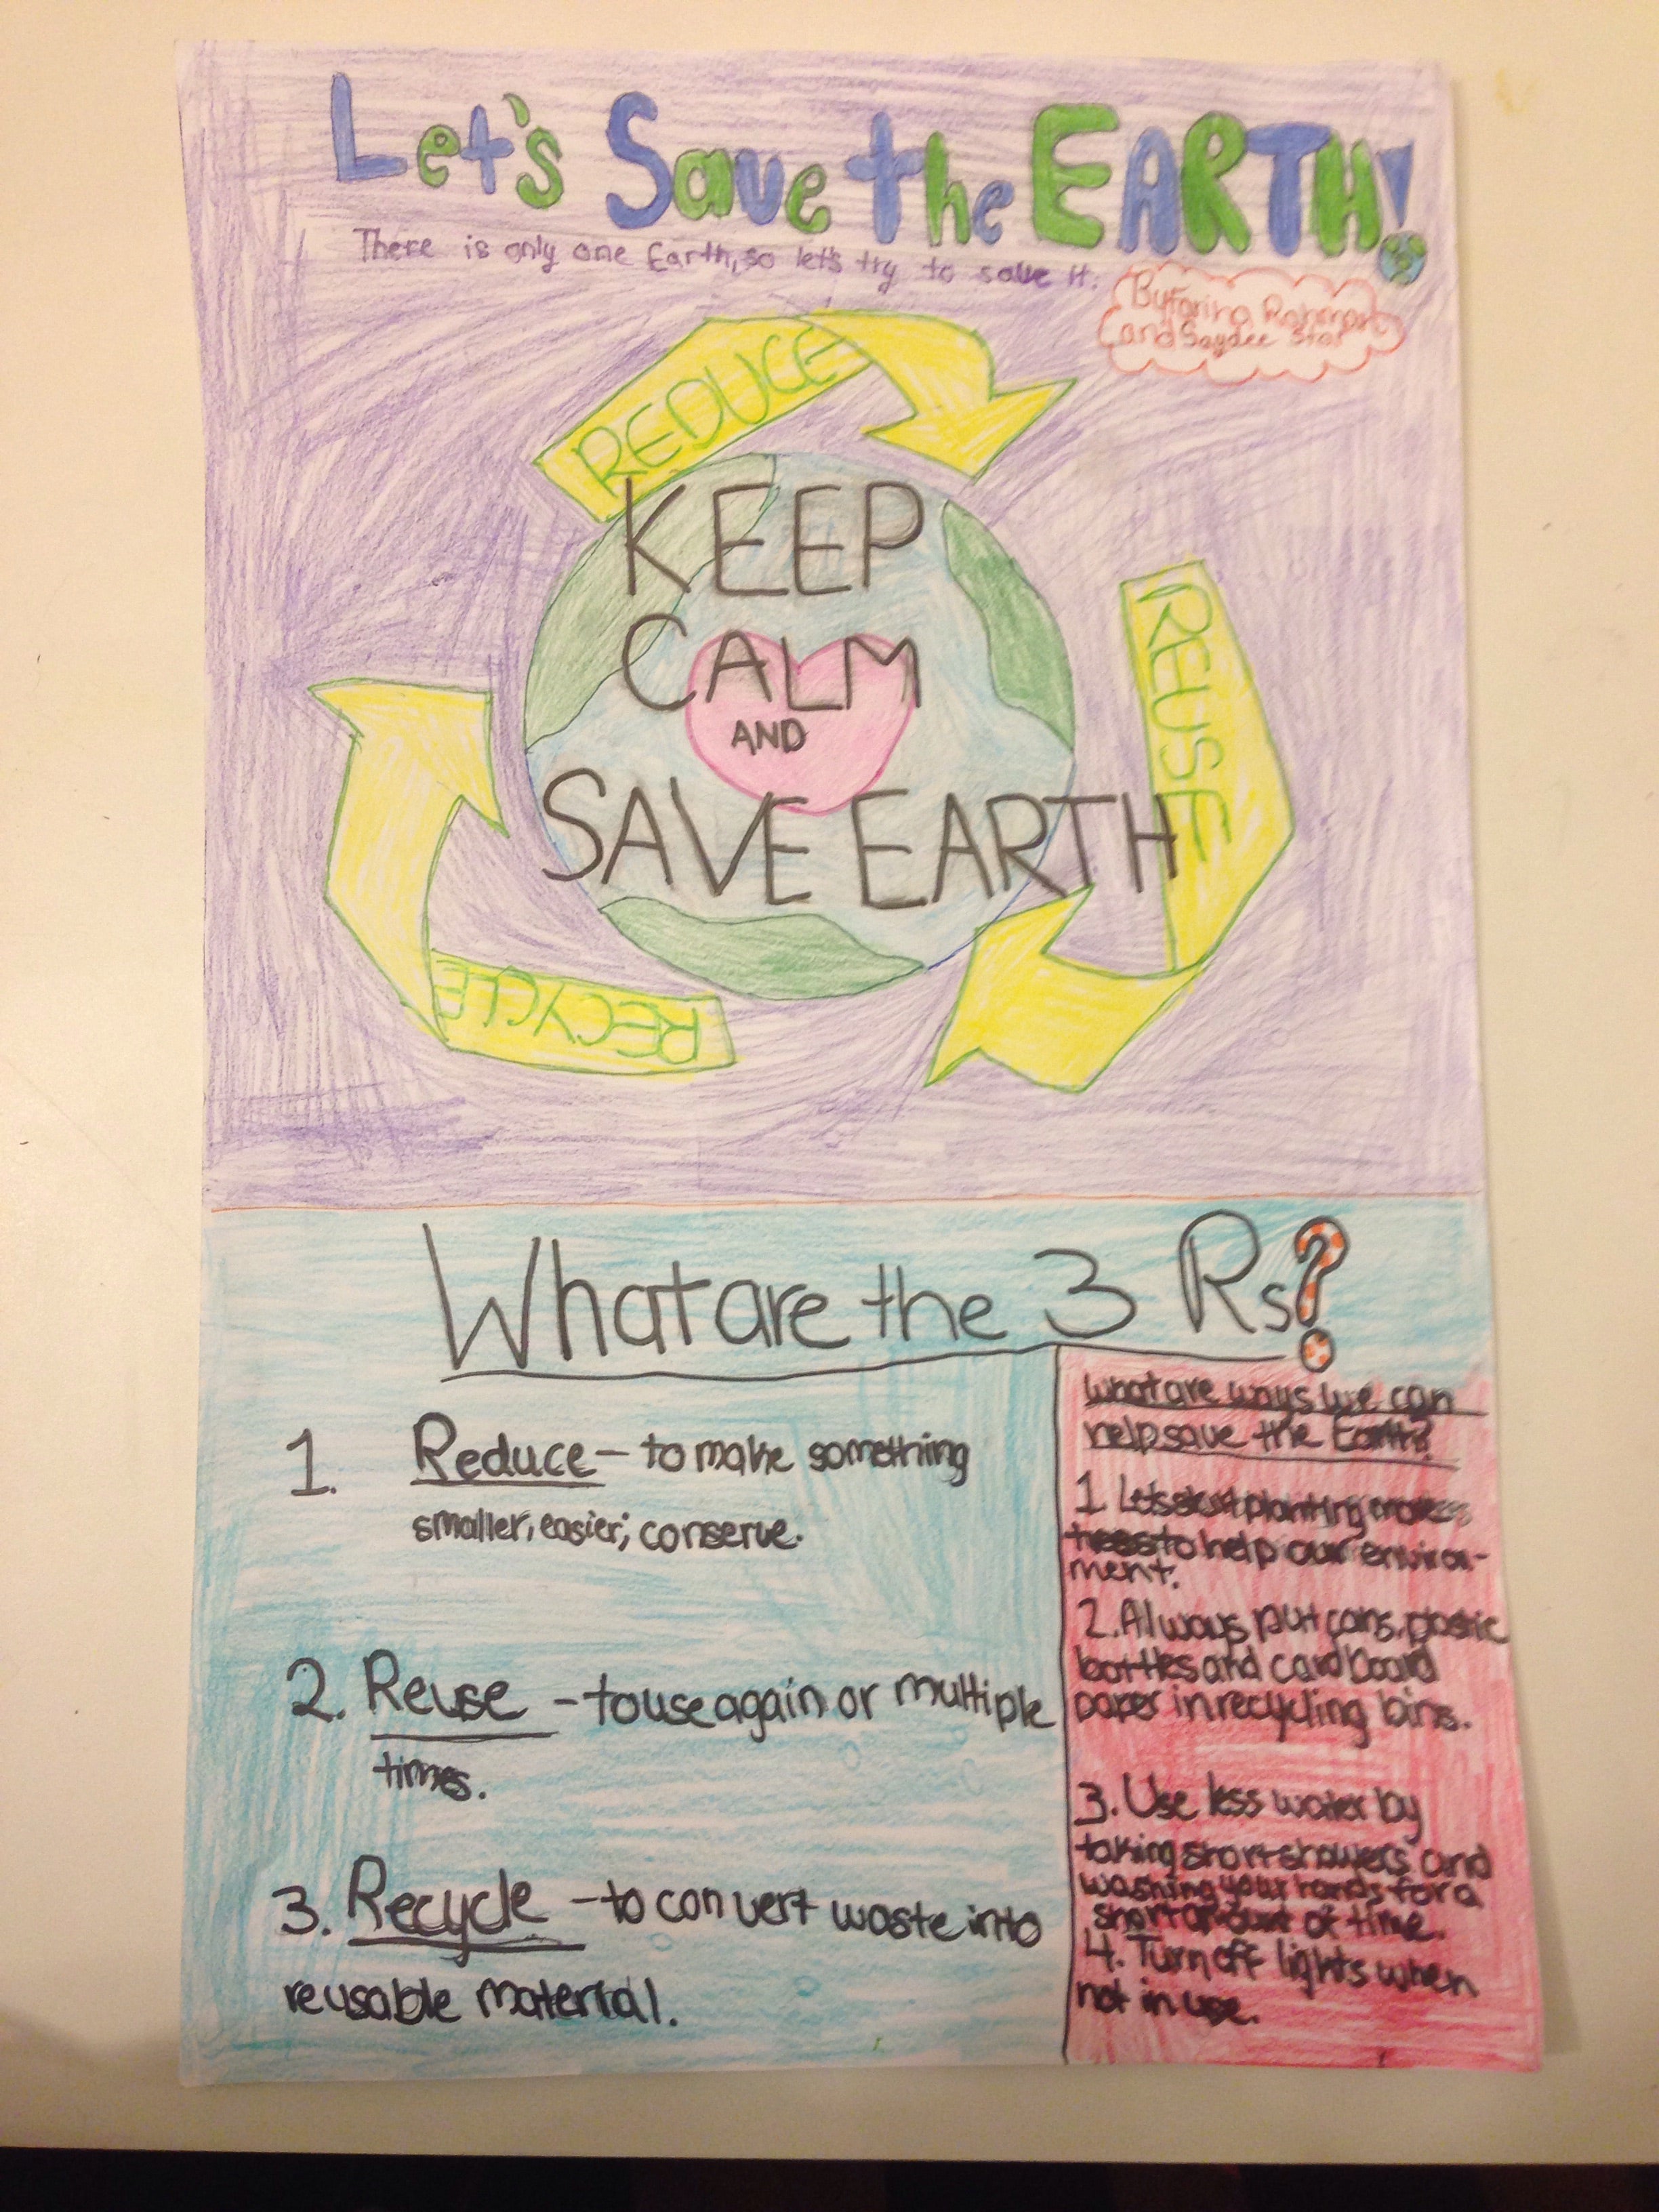 Let's Save the EARTH!
There is only one Earth, so let's try to save it.
By Farina Rahman
and Saydee Star
REDUCE
KEEP
CALM
AND
SAVE EARTH
REUSE
RECYCLE
What are the 3 Rs?
1. Reduce - to make something
smaller, easier; conserve.
2. Reuse - to use again or multiple
times.
3. Recycle - to convert waste into
reusable material.
What are ways we can
help save the Earth?
1. Let's start planting more
trees to help our environ-
ment.
2. Always put cans, plastic
bottles and cardboard
paper in recycling bins.
3. Use less water by
taking short showers and
washing your hands for a
short amount of time.
4. Turn off lights when
not in use.